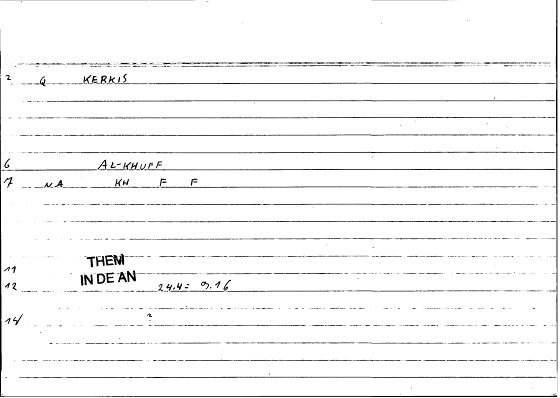 2 Q KERKIS
6 AL-KHUFF
7 N.A KH F F
THEM
11
IN DE AN
12 24.4 = 9.16
14 2